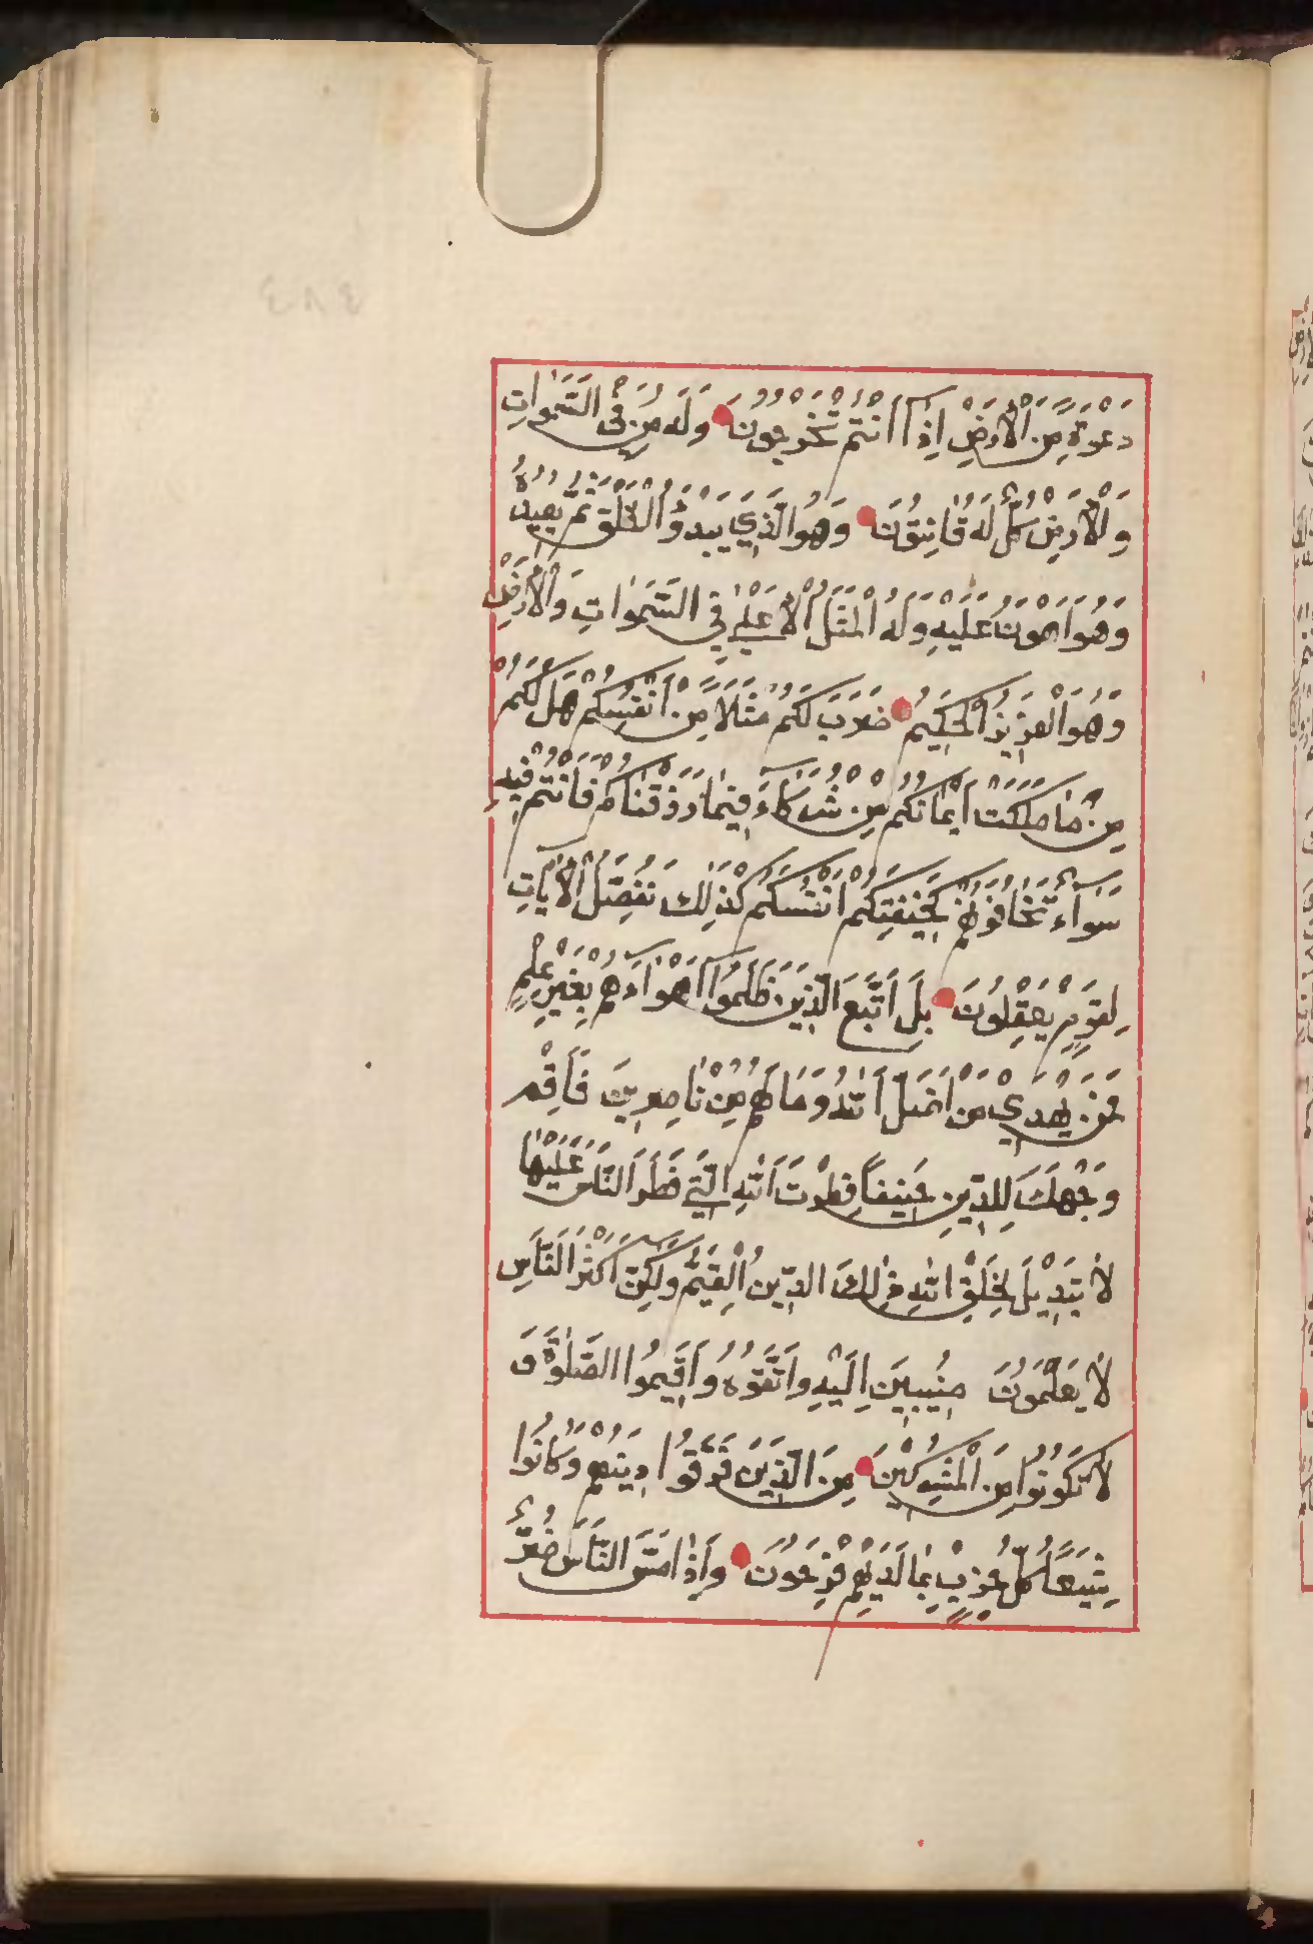 دَعْوَةً مِنَ الْأَرْضِ اِذَآ اَنْتُمْ تَخْرُجُوْنَ وَلَهُ مَنْ فِى السَّمٰوَاتِ
وَالْاَرْضِ كُلٌّ لَهُ قَانِتُوْنَ وَهُوَ الَّذِيْ يَبْدَؤُا الْخَلْقَ ثُمَّ يُعِيْدُهُ
وَهُوَ اَهْوَنُ عَلَيْهِ وَلَهُ الْمَثَلُ الْاَعْلٰى فِي السَّمٰوَاتِ وَالْاَرْضِ
وَهُوَ الْعَزِيْزُ الْحَكِيْمُ ضَرَبَ لَكُمْ مَثَلًا مِنْ اَنْفُسِكُمْ هَلْ لَكُمْ
مِنْ مَا مَلَكَتْ اَيْمَانُكُمْ مِنْ شُرَكَآءَ فِيْمَا رَزَقْنَاكُمْ فَاَنْتُمْ فِيْهِ
سَوَآءٌ تَخَافُوْنَهُمْ كَخِيْفَتِكُمْ اَنْفُسَكُمْ كَذٰلِكَ نُفَصِّلُ الْاٰيَاتِ
لِقَوْمٍ يَعْقِلُوْنَ بَلِ اتَّبَعَ الَّذِيْنَ ظَلَمُوْا اَهْوَآءَهُمْ بِغَيْرِ عِلْمٍ
فَمَنْ يَهْدِيْ مَنْ اَضَلَّ اللّٰهُ وَمَا لَهُمْ مِنْ نَاصِرِيْنَ فَاَقِمْ
وَجْهَكَ لِلدِّيْنِ حَنِيْفًا فِطْرَتَ اللّٰهِ الَّتِيْ فَطَرَ النَّاسَ عَلَيْهَا
لَا تَبْدِيْلَ لِخَلْقِ اللّٰهِ ذٰلِكَ الدِّيْنُ الْقَيِّمُ وَلٰكِنَّ اَكْثَرَ النَّاسِ
لَا يَعْلَمُوْنَ مُنِيْبِيْنَ اِلَيْهِ وَاتَّقُوْهُ وَاَقِيْمُوا الصَّلٰوةَ وَ
لَا تَكُوْنُوْا مِنَ الْمُشْرِكِيْنَ مِنَ الَّذِيْنَ فَرَّقُوْا دِيْنَهُمْ وَكَانُوْا
شِيَعًا كُلُّ حِزْبٍ بِمَا لَدَيْهِمْ فَرِحُوْنَ وَاِذَا مَسَّ النَّاسَ ضُرٌّ